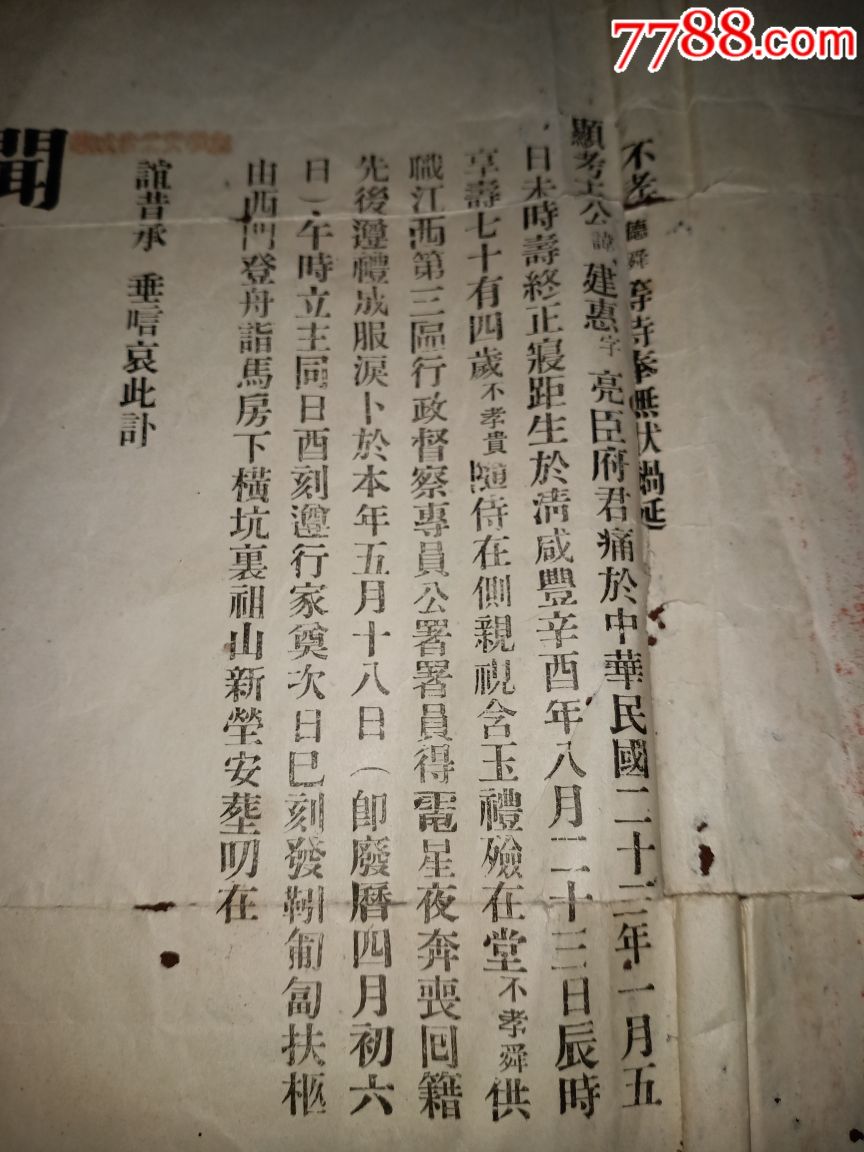 7788.com
不孝德舜等侍奉無狀禍延
顯考 公諱建惠字亮臣府君痛於中華民國二十三年一月五
日未時壽終正寢距生於清咸豐辛酉年八月二十三日辰時
享壽七十有四歲不孝貴隨侍在側親視含玉禮殮在堂不孝舜供
職江西第三區行政督察專員公署署員得電星夜奔喪回籍
先後遵禮成服淚卜於本年五月十八日（即廢曆四月初六
日）午時立主同日酉刻遵行家奠次日巳刻發靷匍匐扶柩
由西門登舟詣馬房下橫坑裏祖山新塋安塟叨在
誼昔承 垂唁哀此訃
聞